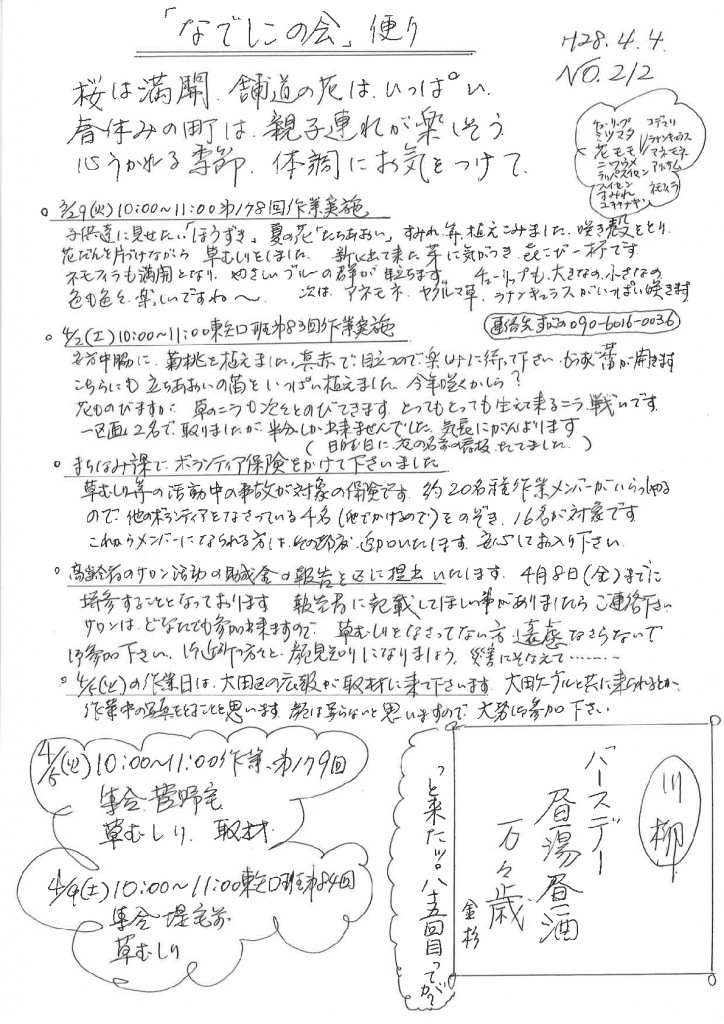 「なでしこの会」便り
H28.4.4.
NO.212
桜は満開、舗道の花は、いっぱい、
春休みの町は、親子連れが楽しそう
心うかれる季節、体調にお気をつけて、
チューリップ
ミツマタ
花モモ
ニワウメ
ラッパスイセン
スイセン
すみれ
ユキヤナギ
コデマリ
ラナンキュラス
アネモネ
アリッサム
ネモフィラ
○ 3/29(火)10:00〜11:00第178回作業実施
子供達に見せたい「ほうずき」夏の花"たちあおい"すみれ等、植えこみました。咲き殻をとり、
花だんを片づけながら 草むしりをしました。 新しく出て来た芽に気がつき、よろこび一杯です
ネモフィラも満開となり やさしいブルーの群が目立ちます。 チューリップも、大きなの、小さなの
色も色々、楽しいですね〜 次は、アネモネ、ヤグルマ草、ラナンキュラスがいっぱい咲きます
○ 4/2(土)10:00〜11:00東矢口班第83回作業実施
連絡先 090-6016-0036
中脇に、菊桃を植えました。真赤で目立つので、楽しみに待って下さい。もうすぐ蕾が開きます
こちらにも 立ちあおいの苗を いっぱい植えました 今年咲くかしら?
花ものびますが、草のニラも次々とのびてきます。とってもとっても生えて来るニラ、戦いです
一区画、2名で、取りましたが、半分しか出来ませんでした。気長にがんばります
(日曜日に、花の名前の看板、たてました。)
○ まちなみ課で、ボランティア保険をかけて下さいました
草むしり等の活動中の事故が対象の保険です。約20名程作業メンバーがいらっしゃる
ので、他のボランティアをなさっている4名(他でかけるので)をのぞき、16名が対象です
これからメンバーになられる方は、その都度、追加いたします。安心してお入り下さい
○ 高齢者のサロン活動の助成金の報告を区に提出いたします。4月8日(金)までに
持参することとなっております 報告書に記載してほしい事がありましたら ご連絡下さい
サロンは、どなたでも参加出来ますので、草むしりをなさってない方、遠慮なさらないで
ご参加下さい。ご近所の方々と、顔見知りになりましょう。災害にそなえて………
○ 4/5(火)の作業日は、大田区の広報が取材に来て下さいます。大田ケーブルと共に来られるとか、
作業中の写真をとることと思います。顔は写らないと思いますので、大勢ご参加下さい
4/5(火)10:00〜11:00作業、第179回
集合 菅野宅
草むしり、取材
4/9(土)10:00〜11:00東矢口班第84回
集合 堤宅前
草むしり
川柳
バースデー
昼湯昼酒
万々歳
金杉
っと来たッ。八十五回目ってか?